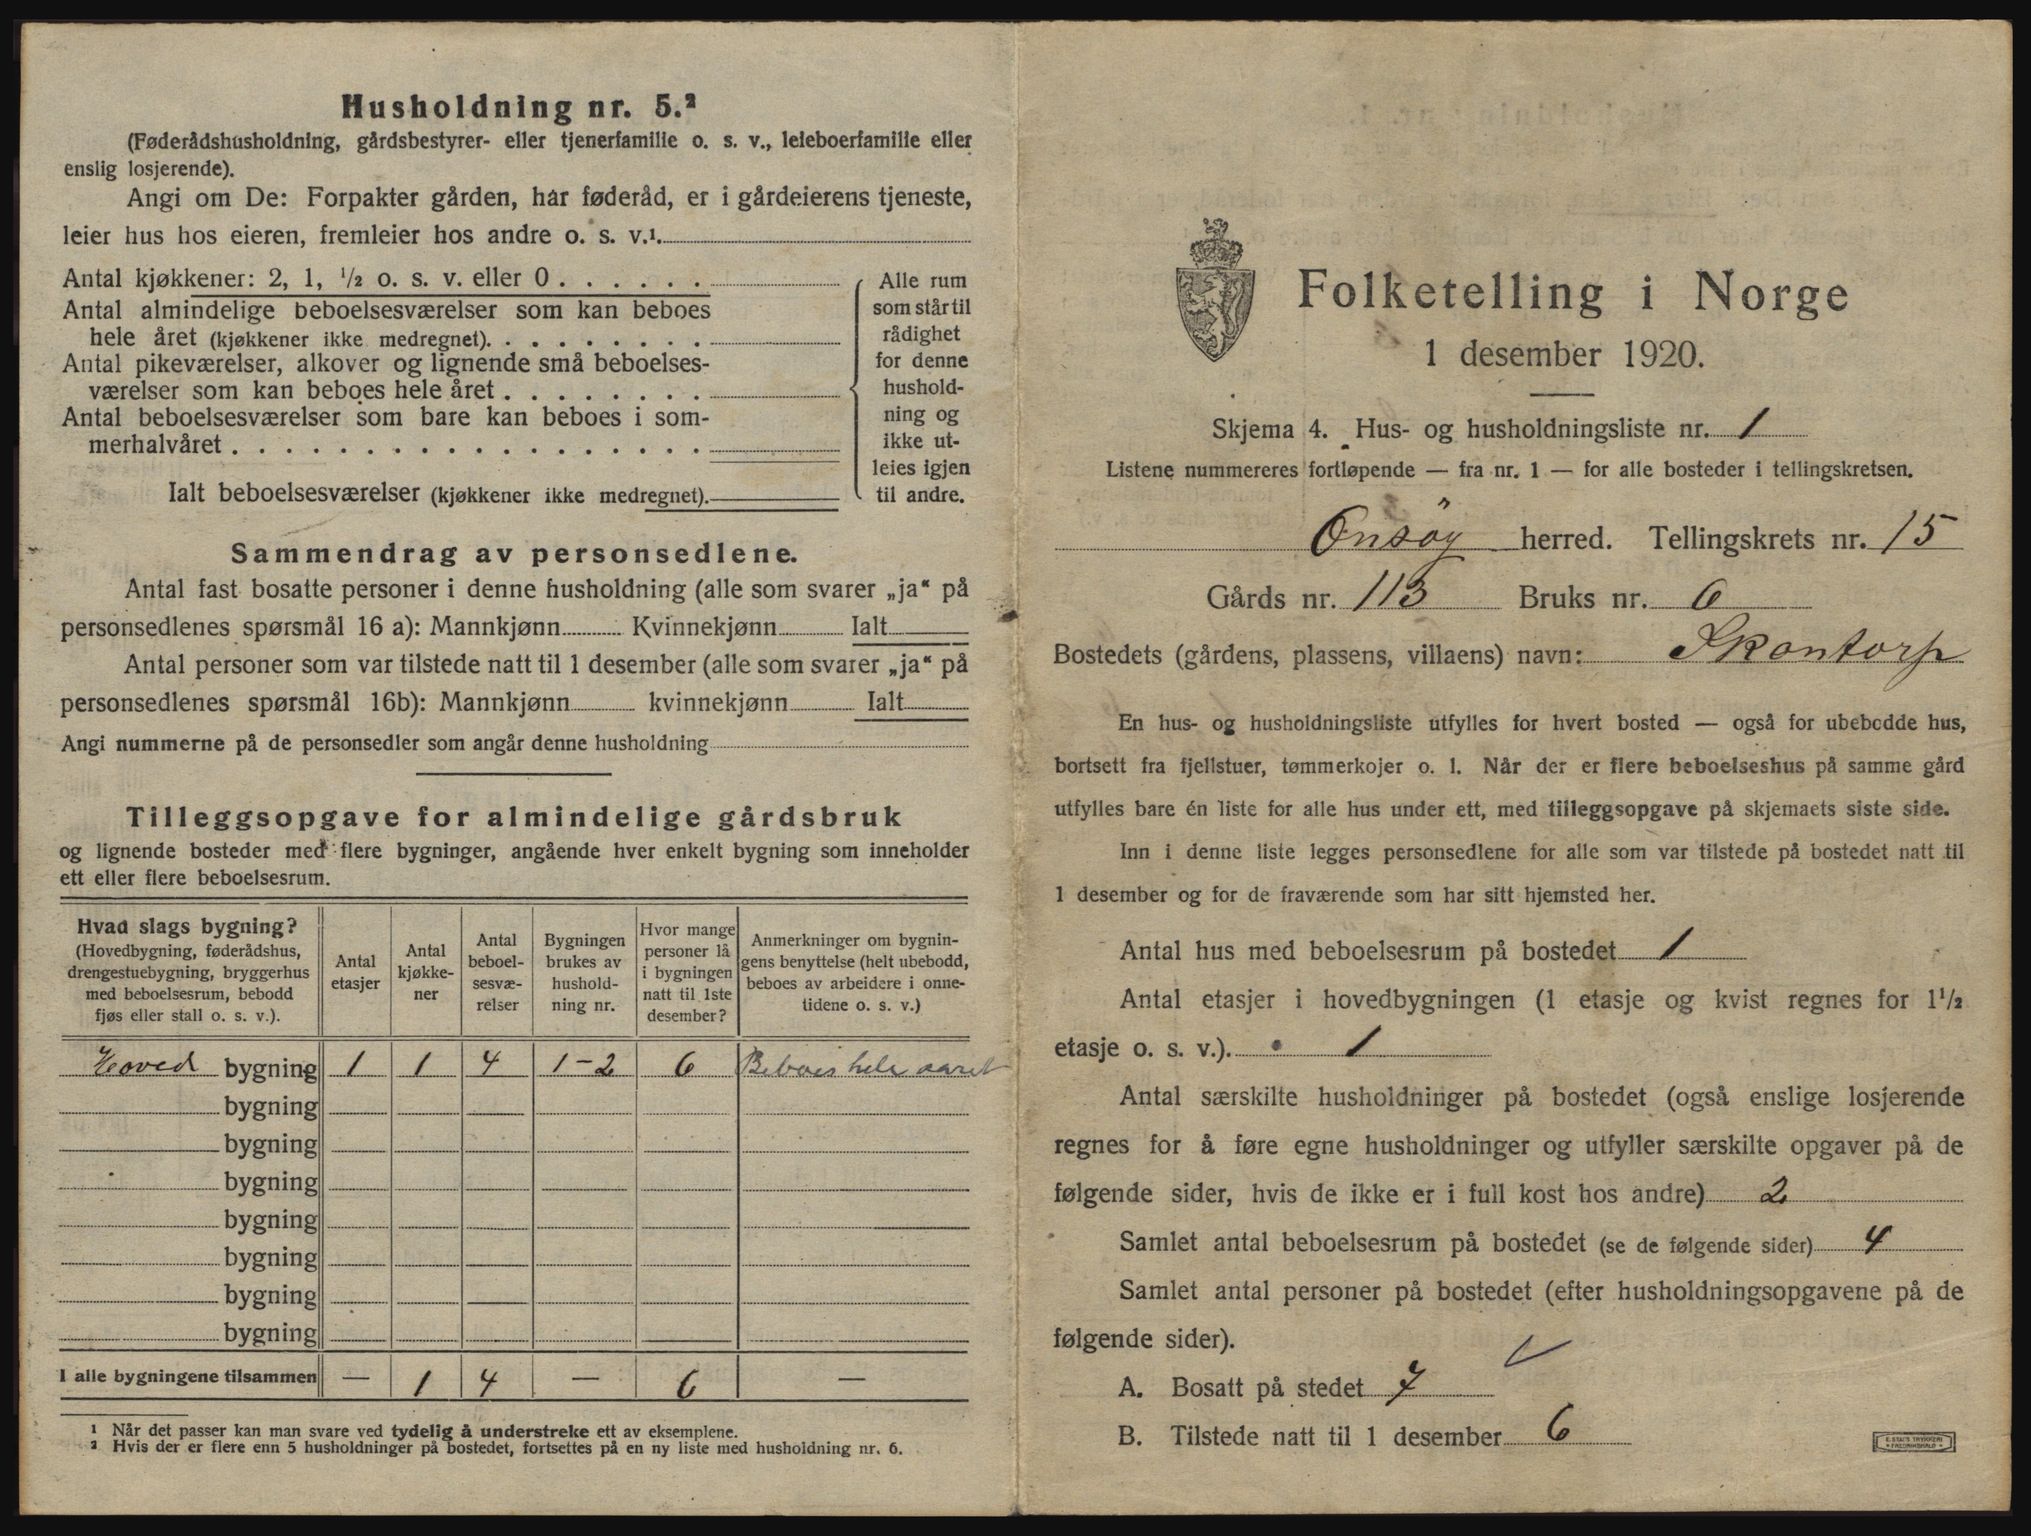 Husholdning nr. 5.²
(Føderådshusholdning, gårdsbestyrer- eller tjenerfamilie o. s. v., leieboerfamilie eller
enslig losjerende).
Angi om De: Forpakter gården, har føderåd, er i gårdeierens tjeneste,
leier hus hos eieren, fremleier hos andre o. s. v.¹
Antal kjøkkener: 2, 1, ½ o. s. v. eller 0 . . . . . .
Antal almindelige beboelsesværelser som kan beboes
hele året (kjøkkener ikke medregnet). . . . . . . . .
Antal pikeværelser, alkover og lignende små beboelses-
værelser som kan beboes hele året . . . . . . . .
Antal beboelsesværelser som bare kan beboes i som-
merhalvåret . . . . . . . . . . . . . . . . . .
Ialt beboelsesværelser (kjøkkener ikke medregnet).
Alle rum
som står til
rådighet
for denne
hushold-
ning og
ikke ut-
leies igjen
til andre.
Sammendrag av personsedlene.
Antal fast bosatte personer i denne husholdning (alle som svarer „ja“ på
personsedlenes spørsmål 16 a): Mannkjønn Kvinnekjønn Ialt
Antal personer som var tilstede natt til 1 desember (alle som svarer „ja“ på
personsedlenes spørsmål 16b): Mannkjønn kvinnekjønn Ialt
Angi nummerne på de personsedler som angår denne husholdning
Tilleggsopgave for almindelige gårdsbruk
og lignende bosteder med flere bygninger, angående hver enkelt bygning som inneholder
ett eller flere beboelsesrum.
Hvad slags bygning?
(Hovedbygning, føderådshus,
drengestuebygning, bryggerhus
med beboelsesrum, bebodd
fjøs eller stall o. s. v.).
Antal
etasjer
Antal
kjøkke-
ner
Antal
beboel-
sesvæ-
relser
Bygningen
brukes av
hushold-
ning nr.
Hvor mange
personer lå
i bygningen
natt til 1ste
desember?
Anmerkninger om bygnin-
gens benyttelse (helt ubebodd,
beboes av arbeidere i onne-
tidene o. s. v.)
Hoved bygning 1 1 4 1-2 6 Beboes hele aaret
bygning
bygning
bygning
bygning
bygning
bygning
bygning
I alle bygningene tilsammen — 1 4 — 6 —
¹ Når det passer kan man svare ved tydelig å understreke ett av eksemplene.
² Hvis der er flere enn 5 husholdninger på bostedet, fortsettes på en ny liste med husholdning nr. 6.
Folketelling i Norge
1 desember 1920.
Skjema 4. Hus- og husholdningsliste nr. 1
Listene nummereres fortløpende — fra nr. 1 — for alle bosteder i tellingskretsen.
Onsöy herred. Tellingskrets nr. 15
Gårds nr. 113 Bruks nr. 6
Bostedets (gårdens, plassens, villaens) navn: Skantorp
En hus- og husholdningsliste utfylles for hvert bosted — også for ubebodde hus,
bortsett fra fjellstuer, tømmerkojer o. l. Når der er flere beboelseshus på samme gård
utfylles bare én liste for alle hus under ett, med tilleggsopgave på skjemaets siste side.
Inn i denne liste legges personsedlene for alle som var tilstede på bostedet natt til
1 desember og for de fraværende som har sitt hjemsted her.
Antal hus med beboelsesrum på bostedet 1
Antal etasjer i hovedbygningen (1 etasje og kvist regnes for 1½
etasje o. s. v.). 1
Antal særskilte husholdninger på bostedet (også enslige losjerende
regnes for å føre egne husholdninger og utfyller særskilte opgaver på de
følgende sider, hvis de ikke er i full kost hos andre) 2
Samlet antal beboelsesrum på bostedet (se de følgende sider) 4
Samlet antal personer på bostedet (efter husholdningsopgavene på de
følgende sider).
A. Bosatt på stedet 7
B. Tilstede natt til 1 desember 6